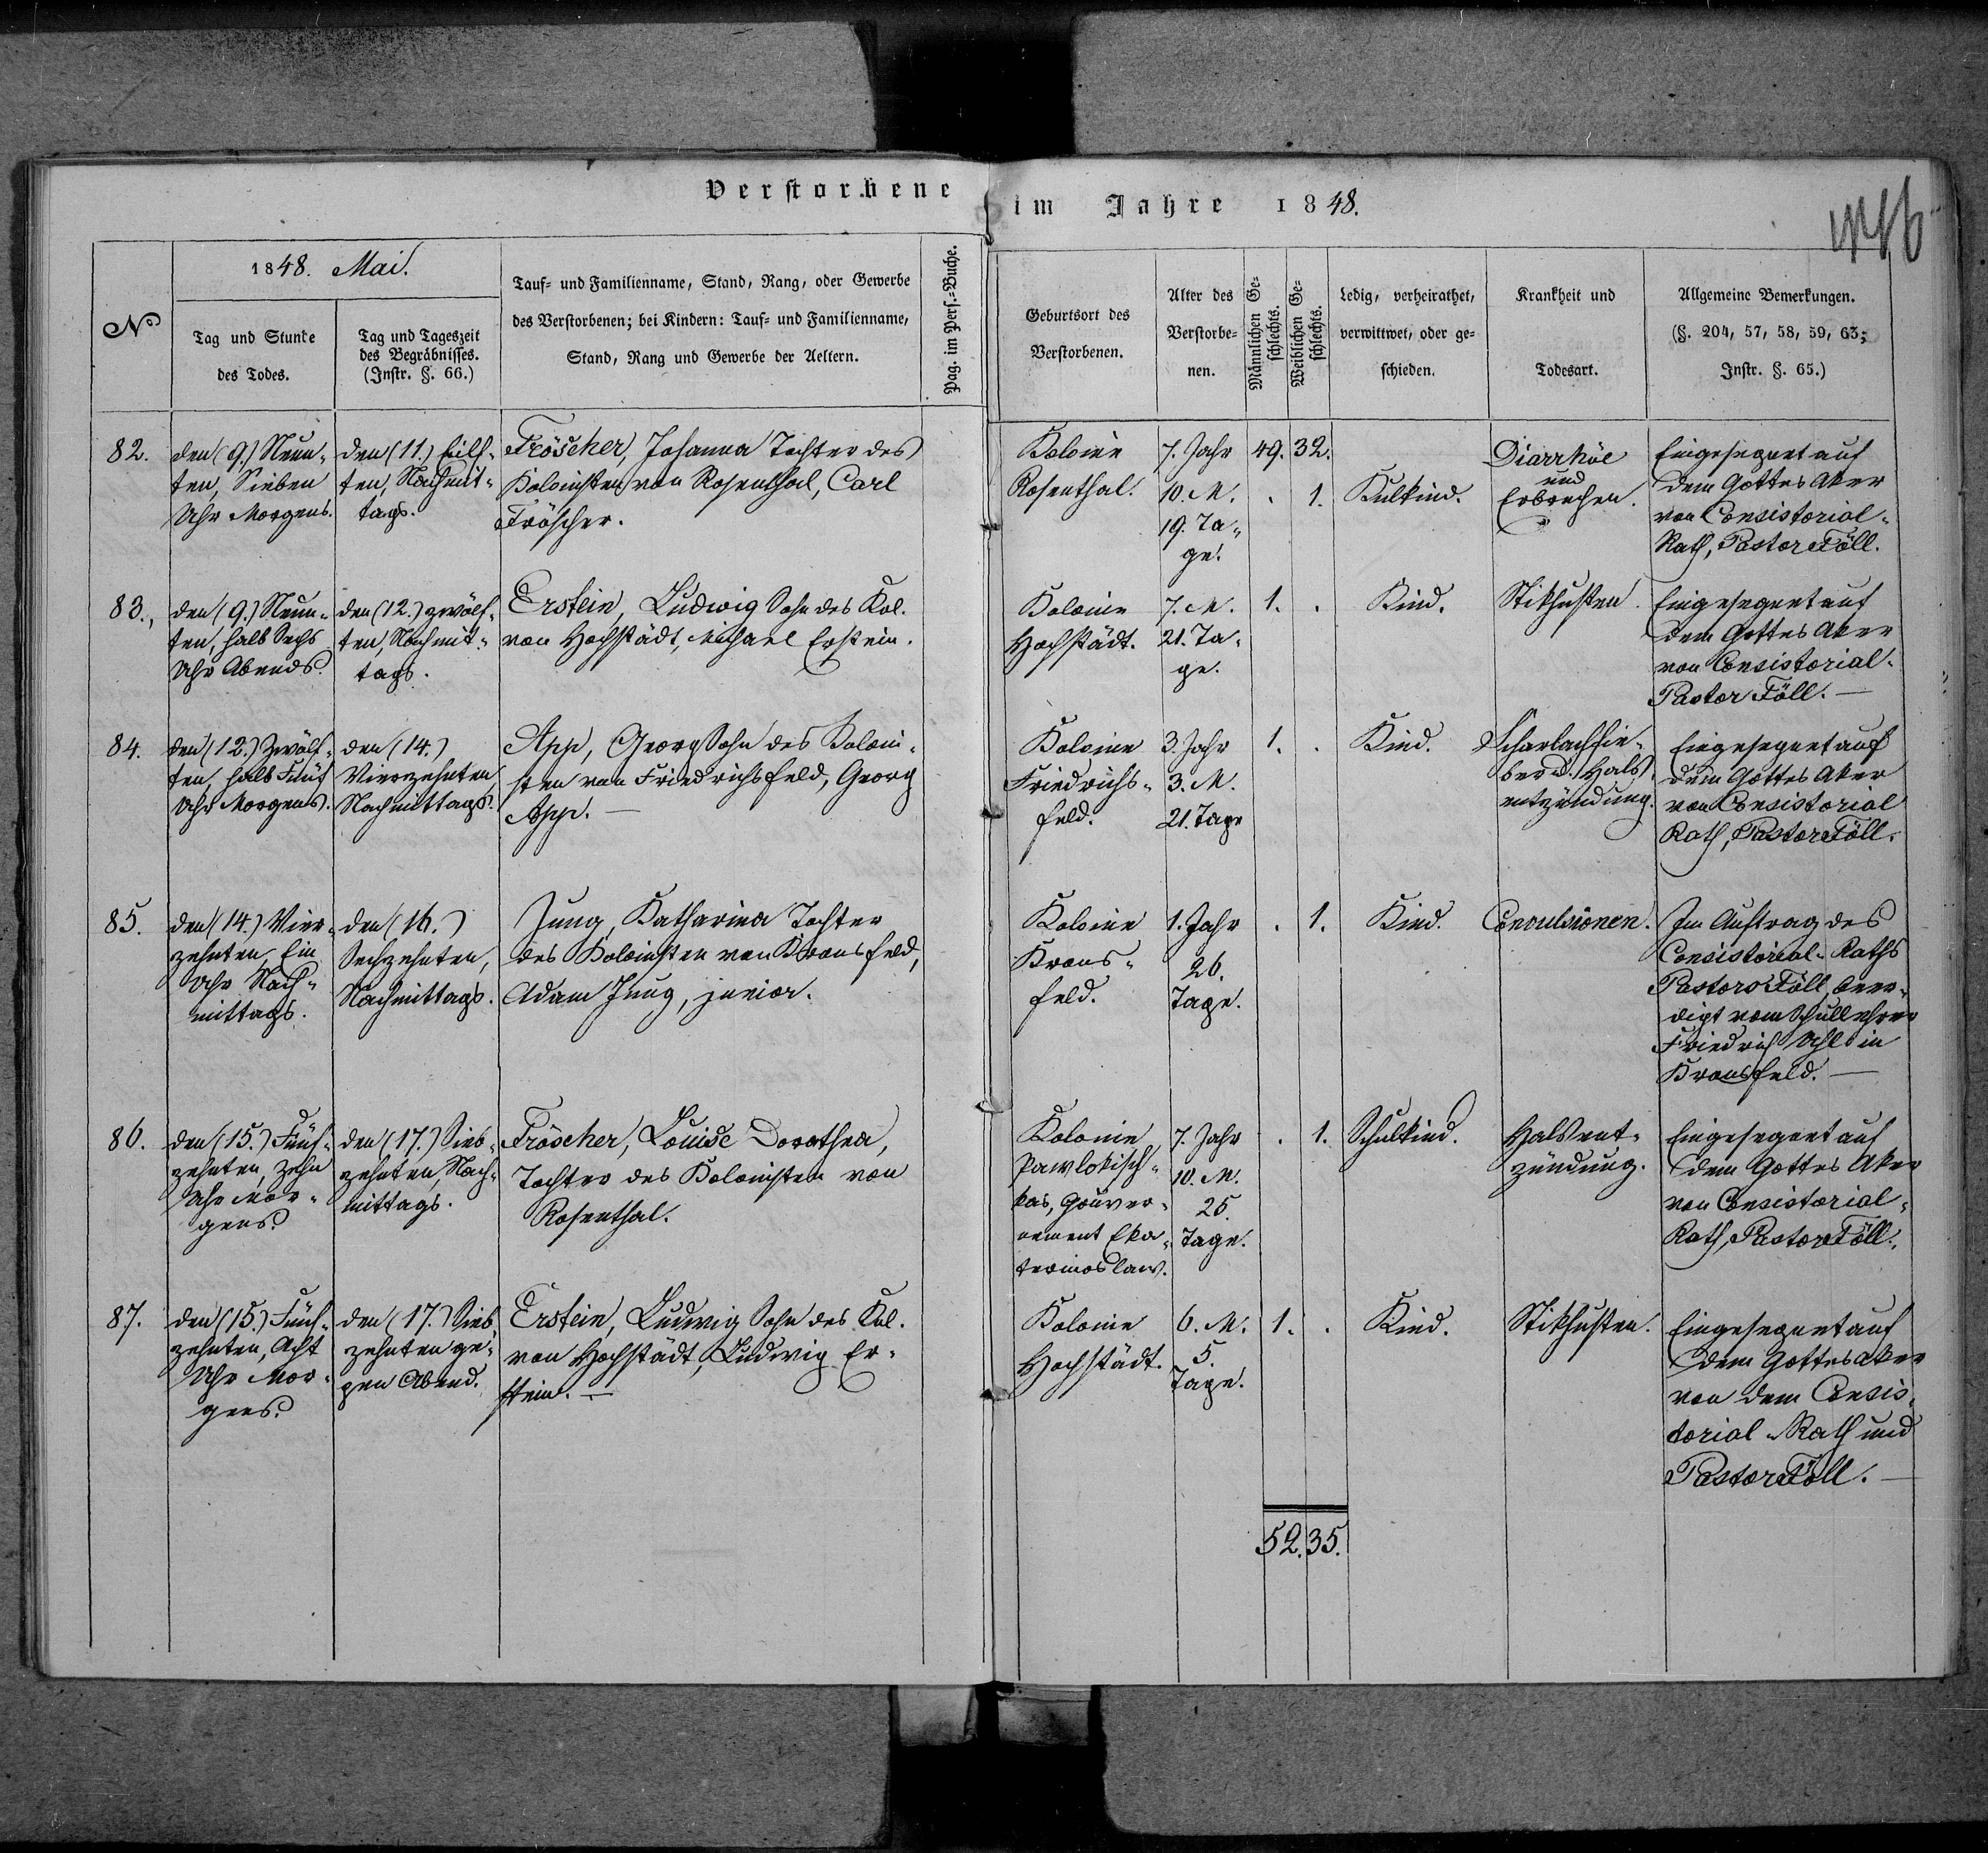 Verstorbene im Jahre 1848.
1848. Mai.
No
Tag und Stunde
des Todes.
Tag und Tageszeit
des Begräbnisses.
(Instr. §. 66.)
Tauf- und Familienname, Stand, Rang, oder Gewerbe
des Verstorbenen; bei Kindern: Tauf- und Familienname,
Stand, Rang und Gewerbe der Aeltern.
Pag. im Pers.-Buche.
Geburtsort des
Verstorbenen.
Alter des
Verstorbe-
nen.
Männlichen Ge-
schlechts.
Weiblichen Ge-
schlechts.
Ledig, verheirathet,
verwittwet, oder ge-
schieden.
Krankheit und
Todesart.
Allgemeine Bemerkungen.
(§. 204, 57, 58, 59, 63;
Instr. §. 65.)
82.
den (9.) Neun-
ten, Sieben
Uhr Morgens.
den (11.) Eilf-
ten, Nachmit-
tags.
Fröscher, Johanna Tochter des
Kolonisten von Rosenthal, Carl
Fröscher.
Kolonie
Rosenthal.
7. Jahr
10. M.
19. Ta-
ge.
49. 32.
. 1.
Diarrhöe
und
Erbrechen.
Eingesegnet auf
dem Gottes Aker
von Consistorial-
Rath, Pastor Föll.
83.,
den (9.) Neun-
ten, halb Sechs
Uhr Abends.
den (12.) zwölf-
ten, Nachmit-
tags.
Erstein, Ludwig Sohn des Kol.
von Hochstädt, Michael Erstein.
Kolonie
Hochstädt.
7. M.
21. Ta-
ge.
1. .
Kind.
Stikhusten.
Eingesegnet auf
dem Gottes Aker
von Consistorial-
Pastor Föll. —
84.
den (12.) Zwölf-
ten, halb Fünf
Uhr Morgens.
den (14.)
Vierzehnten
Nachmittags.
App, Georg Sohn des Koloni-
sten von Friedrichsfeld, Georg
App. —
Kolonie
Friedrichs-
feld.
3. Jahr
3. M.
21. Tage
1. .
Kind.
Scharlachfie-
ber d. Hals
entzündung.
Eingesegnet auf
dem Gottes Aker
von Consistorial
Rath, Pastor Föll.
85.
den (14.) Vier-
zehnten, Ein
Uhr Nach-
mittags.
den (16.)
Sechzehnten,
Nachmittags.
Jung, Katharina Tochter
des Kolonisten von Kronsfeld,
Adam Jung, junior.
Kolonie
Krons-
feld.
1. Jahr
26.
Tage.
. 1.
Kind.
Convulsionen.
Im Auftrag des
Consistorial-Raths
Pastors Föll, beer-
digt vom Schullehrer
Friedrich Uhl in
Kronsfeld. —
86.
den (15.) Fünf-
zehnten, Zehn
Uhr Mor-
gens.
den (17.) Sieb-
zehnten, Nach-
mittags.
Fröscher, Louise Dorothea,
Tochter des Kolonisten von
Rosenthal.
Kolonie
Pawlokisch-
kas, Gouver-
nement Eka-
terinoslaw.
7. Jahr
10. M.
25.
Tage.
. 1.
Schulkind.
Halsent-
zündung.
Eingesegnet auf
dem Gottes Aker
von Consistorial-
Rath, Pastor Föll.
87.
den (15.) Fünf-
zehnten, Acht
Uhr Mor-
gens.
den (17.) Sieb
zehnten ge-
gen Abend.
Erstein, Ludwig Sohn des Kol.
von Hochstädt, Ludwig Er-
stein. —
Kolonie
Hochstädt.
6. M.
5.
Tage.
1. .
Kind.
Stikhusten.
Eingesegnet auf
dem Gottesaker
von dem Consis-
torial-Rath und
Pastor Föll. —
52. 35.